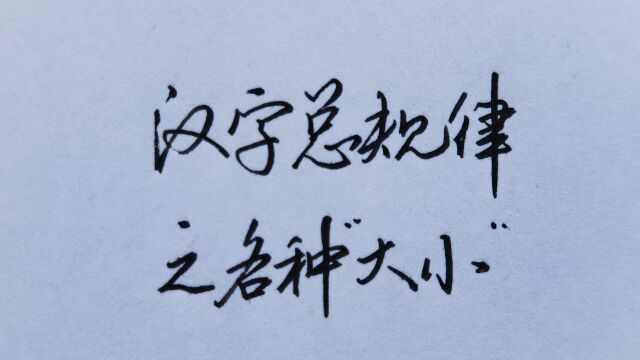 汉字总规律
之各种“大小”